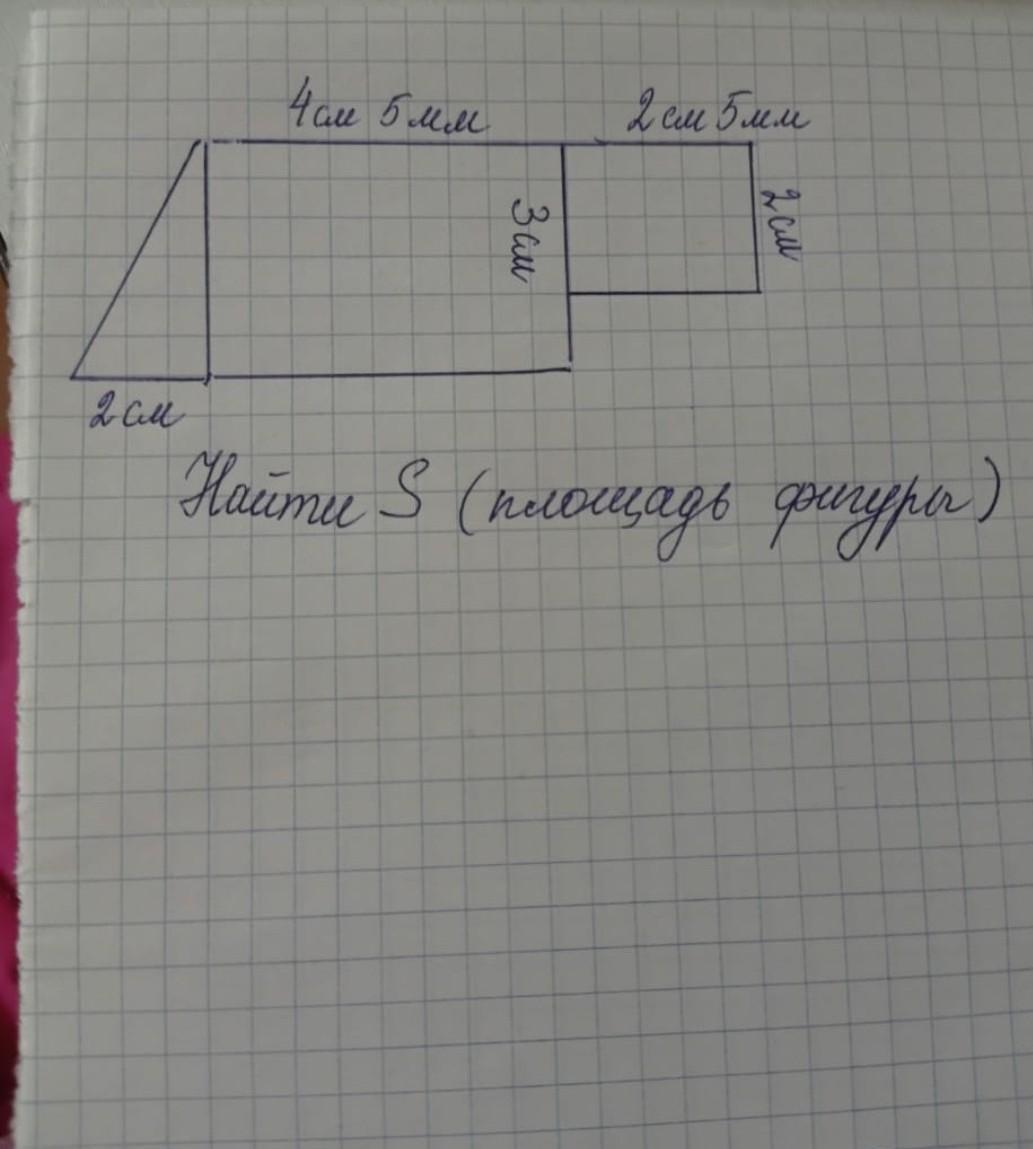 4см 5мм 2см 5мм
3см 2см
2см
Найти S (площадь фигуры)